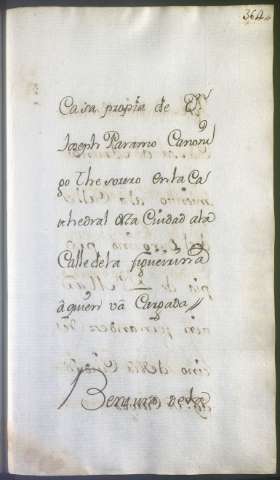 364
Casa propia de Dn
Joseph Paramo Canoni
go Thesorero en la Ca
thedral desta Ciudad a la
Calle de la figueirinha
a quien vâ Cargada